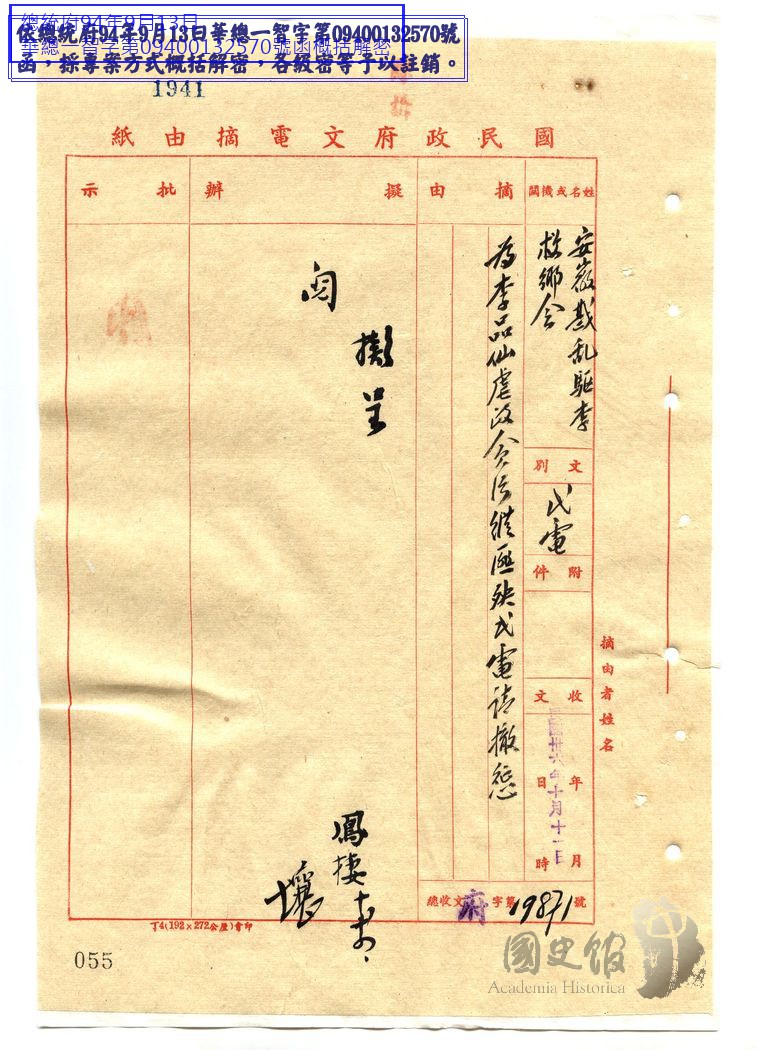 總統府94年9月13日
華總一智字第09400132570號函概括解密
依總統府94年9月13日華總一智字第09400132570號
函，採專案方式概括解密，各級密等予以註銷。
1941
國民政府文電摘由紙
姓名或機關
安徽戡乱驅李
救鄉會
文別
代電
附件
收文
年月日時
卅六年十月十一日
摘由
為李品仙虐政貪污縱匪殃
代電請撤懲
擬辦
擬呈
閱
鳳棲
批示
摘由者姓名
總收文府字第19871號
丁4(192×272公厘)會印
055
國史館
Academia Historica